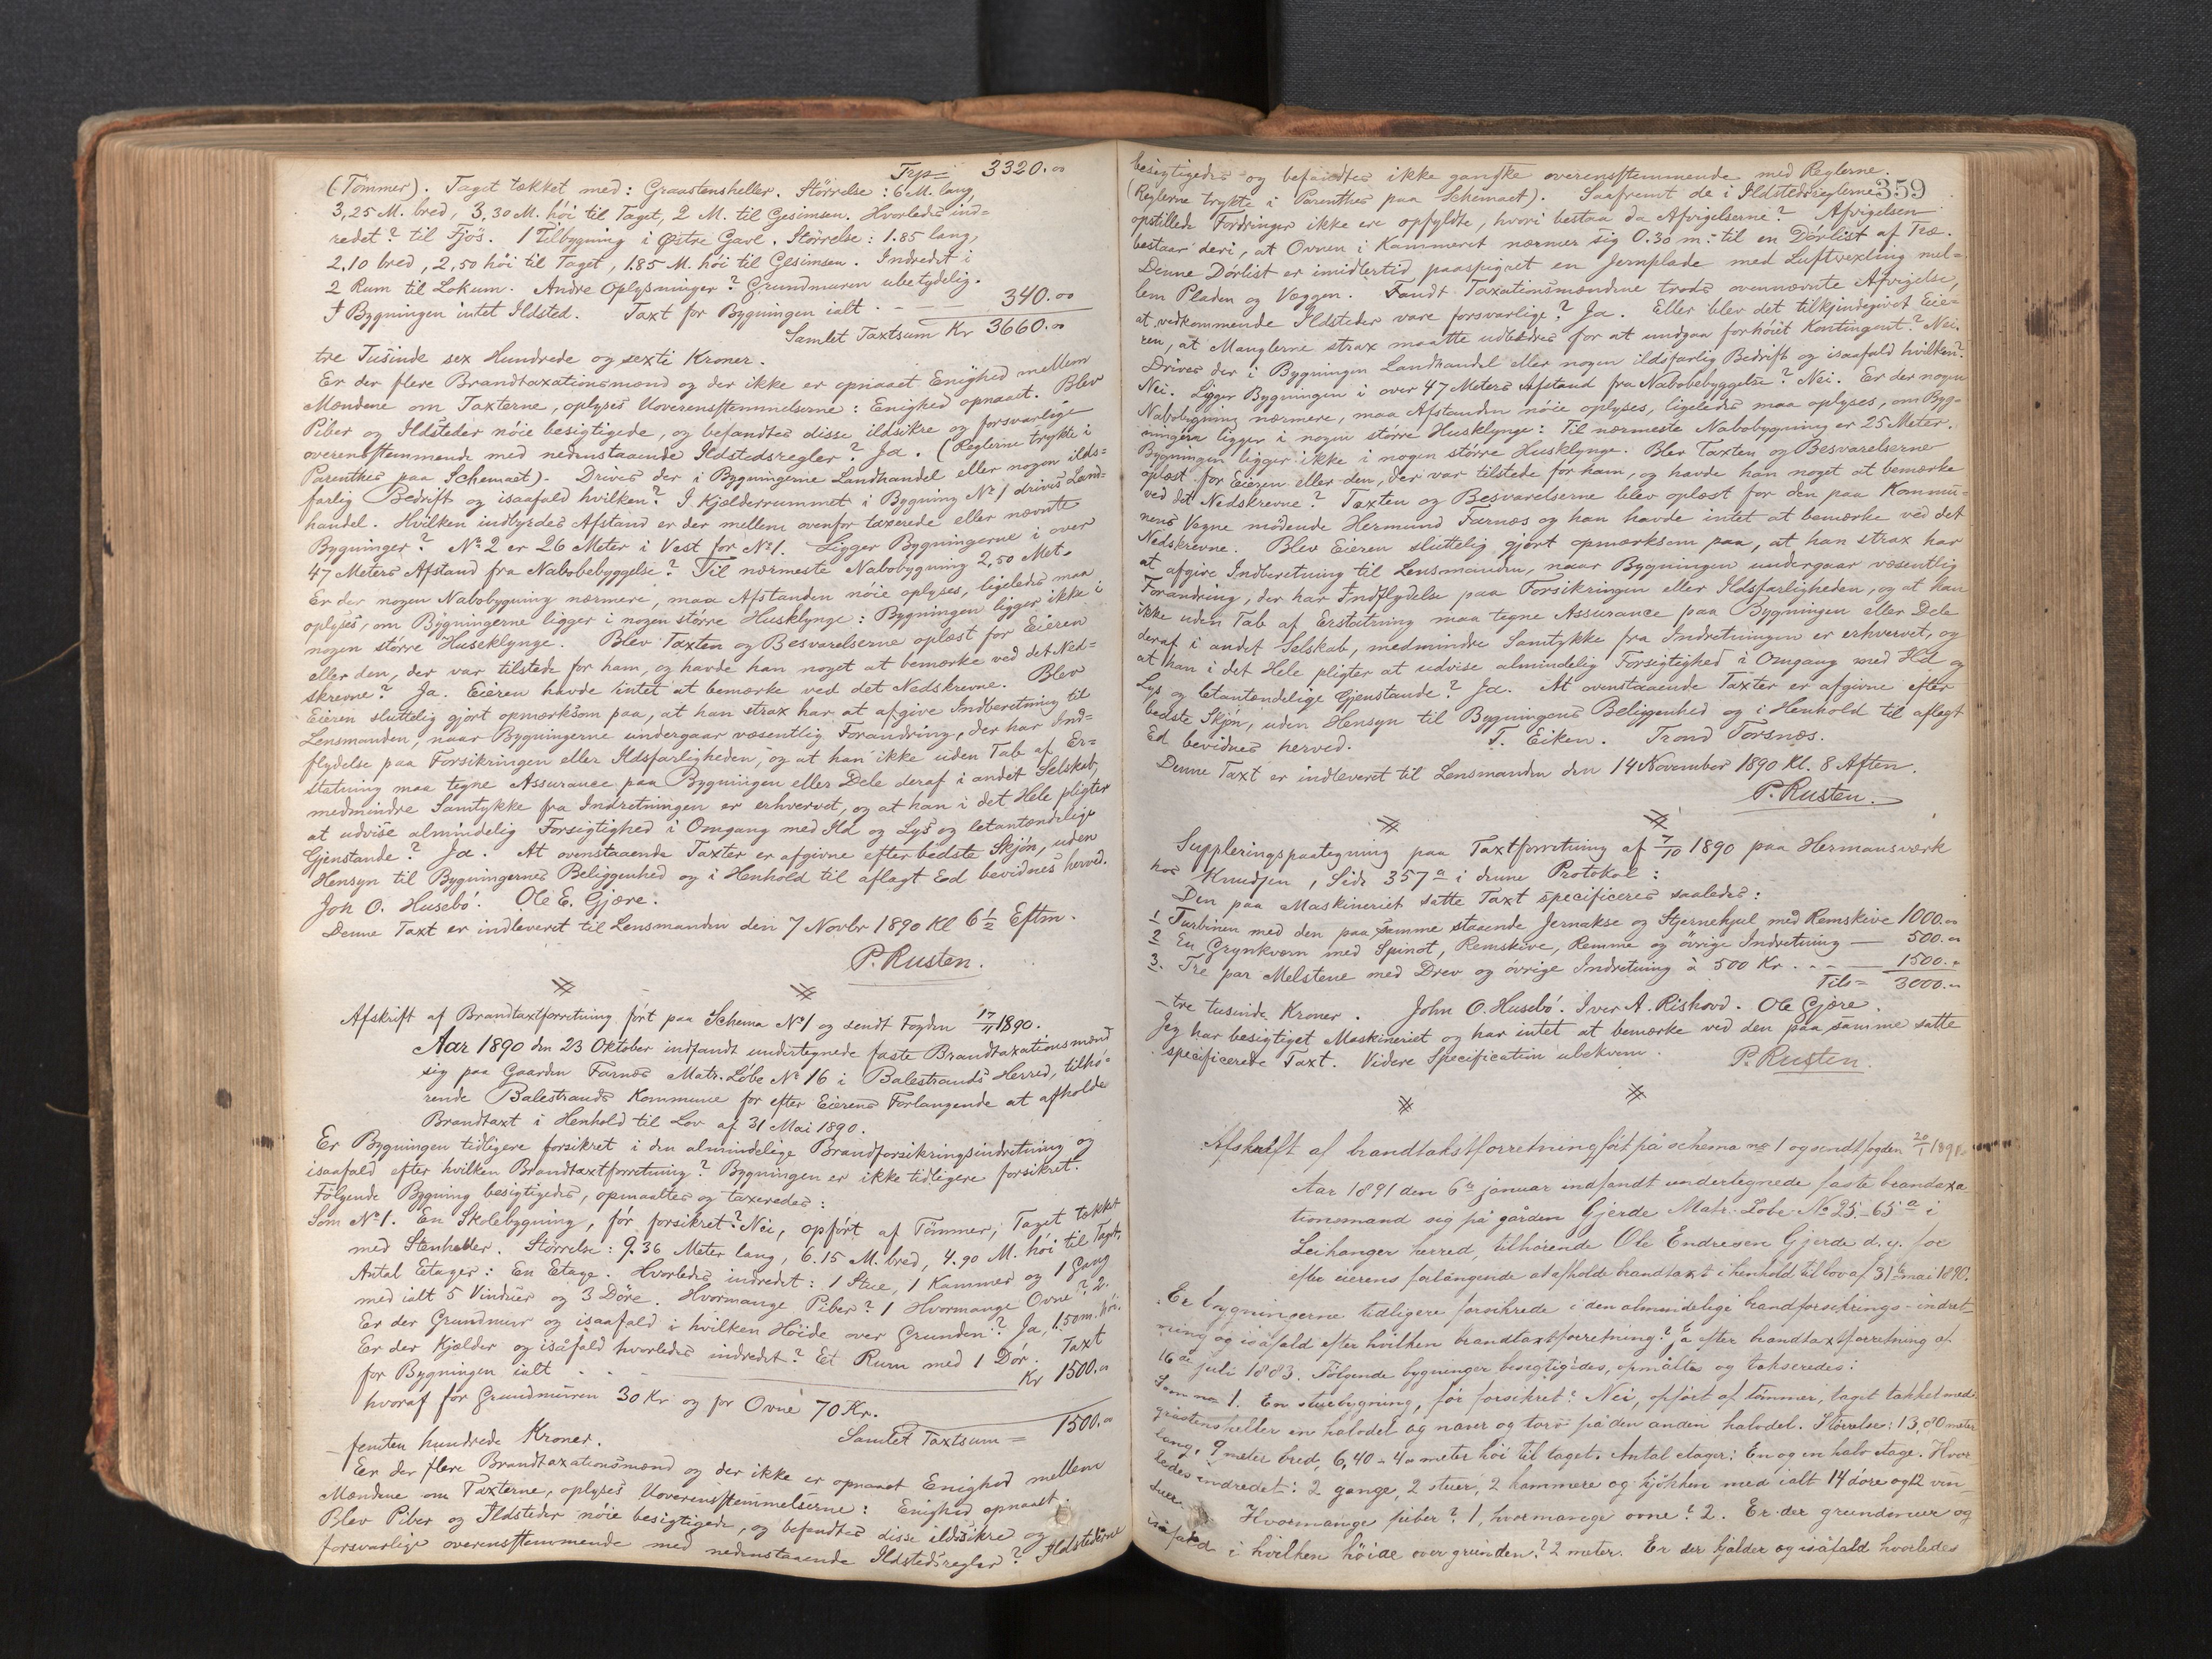 Trp= 3320.00
(Tømmer). Taget tækket med: Graastensheller. Størrelse: 6 M. lang,
3,25 M. bred, 3,30 M. høi til Taget, 2 M. til Gesimsen. Hvorledes ind=
redet? til Fjøs. 1 Tilbygning i Østre Gavl. Størrelse: 1.85 lang,
2.10 bred, 2,50 høi til Taget, 1.85 M. høi til Gesimsen. Indredet i
2 Rum til Lokum. Andre Oplysninger? Grundmuren ubetydelig.
I Bygningen intet Ildsted. Taxt for Bygningen ialt . - 340.00
Samlet Taxtsum Kr 3660.00
tre Tusinde sex Hundrede og sexti Kroner.
Er der flere Brandtaxationsmænd og der ikke er opnaaet Enighed mellem
Mændene om Taxterne, oplyses Uoverensstemmelserne: Enighed opnaaet. Blev
Piber og Ildsteder nøie besigtigede, og befandtes disse ildsikre og forsvarlige
overensstemmende med nedenstaaende Ildstedsregler? Ja. (Reglerne trykte i
Parenthes paa Schemaet). Drives der i Bygningerne Landhandel eller nogen ilds=
farlig Bedrift og isaafald hvilken? I Kjælderrummet i Bygning No 1 drives Land=
handel. Hvilken indbyrdes Afstand er der mellem ovenfor taxerede eller nævnte
Bygninger? No 2 er 26 Meter i Vest for No 1. Ligger Bygningerne i over
47 Meters Afstand fra Nabobebyggelse? Til nærmeste Nabobygning 2,50 Met.
Er der nogen Nabobygning nærmere, maa Afstanden nøie oplyses, ligeledes maa
oplyses, om Bygningerne ligger i nogen større Husklynge: Bygningen ligger ikke i
nogen større Huseklynge. Blev Taxten og Besvarelserne oplæst for Eieren
eller den, der var tilstede for ham, og havde han noget at bemærke ved det Ned=
skrevne? Ja. Eieren havde intet at bemærke ved det Nedskrevne. Blev
Eieren sluttelig gjort opmærksom paa, at han strax har at afgive Indberetning til
Lensmanden, naar Bygningerne undergaar væsentlig Forandring, der har Ind=
flydelse paa Forsikringen eller Ildsfarligheden, og at han ikke uden Tab af Er=
statning maa tegne Assurance paa Bygningen eller Dele deraf i andet Selskab,
medmindre Samtykke fra Indretningen er erhvervet, og at han i det Hele pligter
at udvise almindelig Forsigtighed i Omgang med Ild og Lys og letantændelige
Gjenstande? Ja. At ovenstaaende Taxter er afgivne efter bedste Skjøn, uden
Hensyn til Bygningernes Beliggenhed og i Henhold til aflagt Ed bevidnes herved.
Joh O. Husebø. Ole E. Gjære.
Denne Taxt er indleveret til Lensmanden den 7 Novbr 1890 Kl 6 1/2 Eftm.
P. Rusten.
Afskrift af Brandtaxtforretning ført paa Schema No 1 og sendt Fogden 17/11 1890.
Aar 1890 den 23 Oktober indfandt undertegnede faste Brandtaxationsmænd
sig paa Gaarden Farnæs Matr. Løbe No 16 i Balestrands Herred, tilhø=
rende Balestrands Kommune for efter Eierens Forlangende at afholde
Brandtaxt i Henhold til Lov af 31 Mai 1890.
Er Bygningen tidligere forsikret i den almindelige Brandforsikringsindretning og
isaafald efter hvilken Brandtaxtforretning? Bygningen er ikke tidligere forsikret.
Følgende Bygning besigtigedes, opmaaltes og taxeredes:
Som No 1. En Skolebygning, før forsikret? Nei, opført af Tømmer, Taget tækket
med Stenheller. Størrelse: 9.36 Meter lang, 6.15 M. bred, 4.90 M. høi til Taget.
Antal Etager: En Etage. Hvorledes indredet: 1 Stue, 1 Kammer og 1 Gang
med ialt 5 Vinduer og 3 Døre. Hvormange Piber? 1 Hvormange Ovne? 2.
Er der Grundmur og isaafald i hvilken Høide over Grunden? Ja, 1.50 m. høi.
Er der Kjælder og isåfald hvorledes indredet? Et Rum med 1 Dør. Taxt
for Bygningen ialt . . Kr 1500.00
hvoraf for Grundmuren 30 Kr og for Ovne 70 Kr.
Samlet Taxtsum = 1500.00
- femten hundrede Kroner.
Er der flere Brandtaxationsmænd og der ikke er opnaaet Enighed mellem
Mændene om Taxterne, oplyses Uoverensstemmelserne: Enighed opnaaet.
Blev Piber og Ildsteder nøie besigtigede, og befandtes disse ildsikre og
forsvarlige overensstemmende med nedenstaaende Ildstedsregler? Ildstederne
359
besigtigedes og befandtes ikke ganske overensstemmende med Reglerne.
(Reglerne trykte i Parenthes paa Schemaet). Saafremt de i Ildstedsreglerne
opstillede Fordringer ikke ere opfyldte, hvori bestaa da Afvigelserne? Afvigelsen
bestaar deri, at Ovnen i Kammeret nærmer sig 0.30 m. til en Dørlist af Træ.
Denne Dørlist er imidlertid paaspigret en Jernplade med Luftvexling mel=
lem Pladen og Væggen. Fandt Taxationsmændene trods ovennævnte Afvigelse,
at vedkommende Ildsteder vare forsvarlige? Ja. Eller blev det tilkjendegivet Eie=
ren, at Manglerne strax maatte udbedres for at undgaa forhøiet Kontingent? Nei.
Drives der i Bygningen Landhandel eller nogen ildsfarlig Bedrift og isaafald hvilken?
Nei. Ligger Bygningen i over 47 Meters Afstand fra Nabobebyggelse? Nei. Er der nogen
Nabobygning nærmere, maa Afstanden nøie oplyses, ligeledes maa oplyses, om Byg=
ningen ligger i nogen større Husklynge: Til nærmeste Nabobygning er 25 Meter.
Bygningen ligger ikke i nogen større Husklynge. Blev Taxten og Besvarelserne
oplæst for Eieren eller den, der var tilstede for ham, og havde han noget at bemærke
ved det Nedskrevne? Taxten og Besvarelserne blev oplæst for den paa Kommu=
nens Vegne mødende Hermund Farnæs og han havde intet at bemærke ved det
Nedskrevne. Blev Eieren sluttelig gjort opmærksom paa, at han strax har
at afgive Indberetning til Lensmanden, naar Bygningen undergaar væsentlig
Forandring, der har Indflydelse paa Forsikringen eller Ildsfarligheden, og at han
ikke uden Tab af Erstatning maa tegne Assurance paa Bygningen eller Dele
deraf i andet Selskab, medmindre Samtykke fra Indretningen er erhvervet, og
at han i det Hele pligter at udvise almindelig Forsigtighed i Omgang med Ild og
Lys og letantændelige Gjenstande? Ja. At ovenstaaende Taxter er afgivne efter
bedste Skjøn, uden Hensyn til Bygningens Beliggenhed og i Henhold til aflagt
Ed bevidnes herved. T. Eiken. Trond Torsnæs.
Denne Taxt er indleveret til Lensmanden den 14 November 1890 Kl. 8 Aften.
P. Rusten.
Suppleringspaategning paa Taxtforretning af 7/10 1890 paa Hermansværk
hos Knudsen, Side 357a i denne Protokol:
Den paa Maskineriet satte Taxt specificeres saaledes:
1 Turbinen med den paa samme staaende Jernakse og Stjernehjul med Remskive 1000.00
2 En Grynkværn med Spinot, Remskive, Remme og øvrige Indretning - 500.00
3. Tre par Melstene med Drev og øvrige Indretning à 500 Kr . . - 1500.00
Tils= 3000.00
- tre tusinde Kroner. John O. Husebø. Iver A. Rishovd. Ole Gjøre.
Jeg har besigtiget Maskineriet og har intet at bemærke ved den paa samme satte
specificerede Taxt. Videre Specification ubekvem. P. Rusten.
Afskrift af brandtakstforretning ført på schema no 1 og sendt fogden 20/1 1891.
Aar 1891 den 6te januar indfandt undertegnede faste brandtaxa
tionsmænd sig på gården Gjerde Matr. Løbe No 25-65a i
Leikanger herred, tilhørende Ole Endresen Gjerde d. y. for
efter eierens forlangende at afholde brandtaxt i henhold til lov af 31te mai 1890.
Er bygningerne tidligere forsikrede i den almindelige brandforsikrings-indret
ning og isåfald efter hvilken brandtaxtforretning? Ja efter brandtaxtforretning af
16de juli 1883. Følgende bygninger besegtigedes, opmåltes og takseredes:
Som no 1. En stuebygning, før forsikret? Nei, opført af tømmer, taget tækket med
gråstensheller en halvdel og næver og torv på den anden halvdel. Størrelse: 13,00 meter
lang, 9 meter bred, 6,40 - 4 meter høi til taget. Antal etager: En og en halv etage. Hvor
ledes indredet: 2 gange, 2 stuer, 2 kammere og kjøkken med ialt 14 døre og 12 vin
duer. Hvormange piber? 1, hvormange ovne? 2. Er der grundmur og
isåfald i hvilken høide over grunden? 2 meter. Er der kjælder og isåfald hvorledes